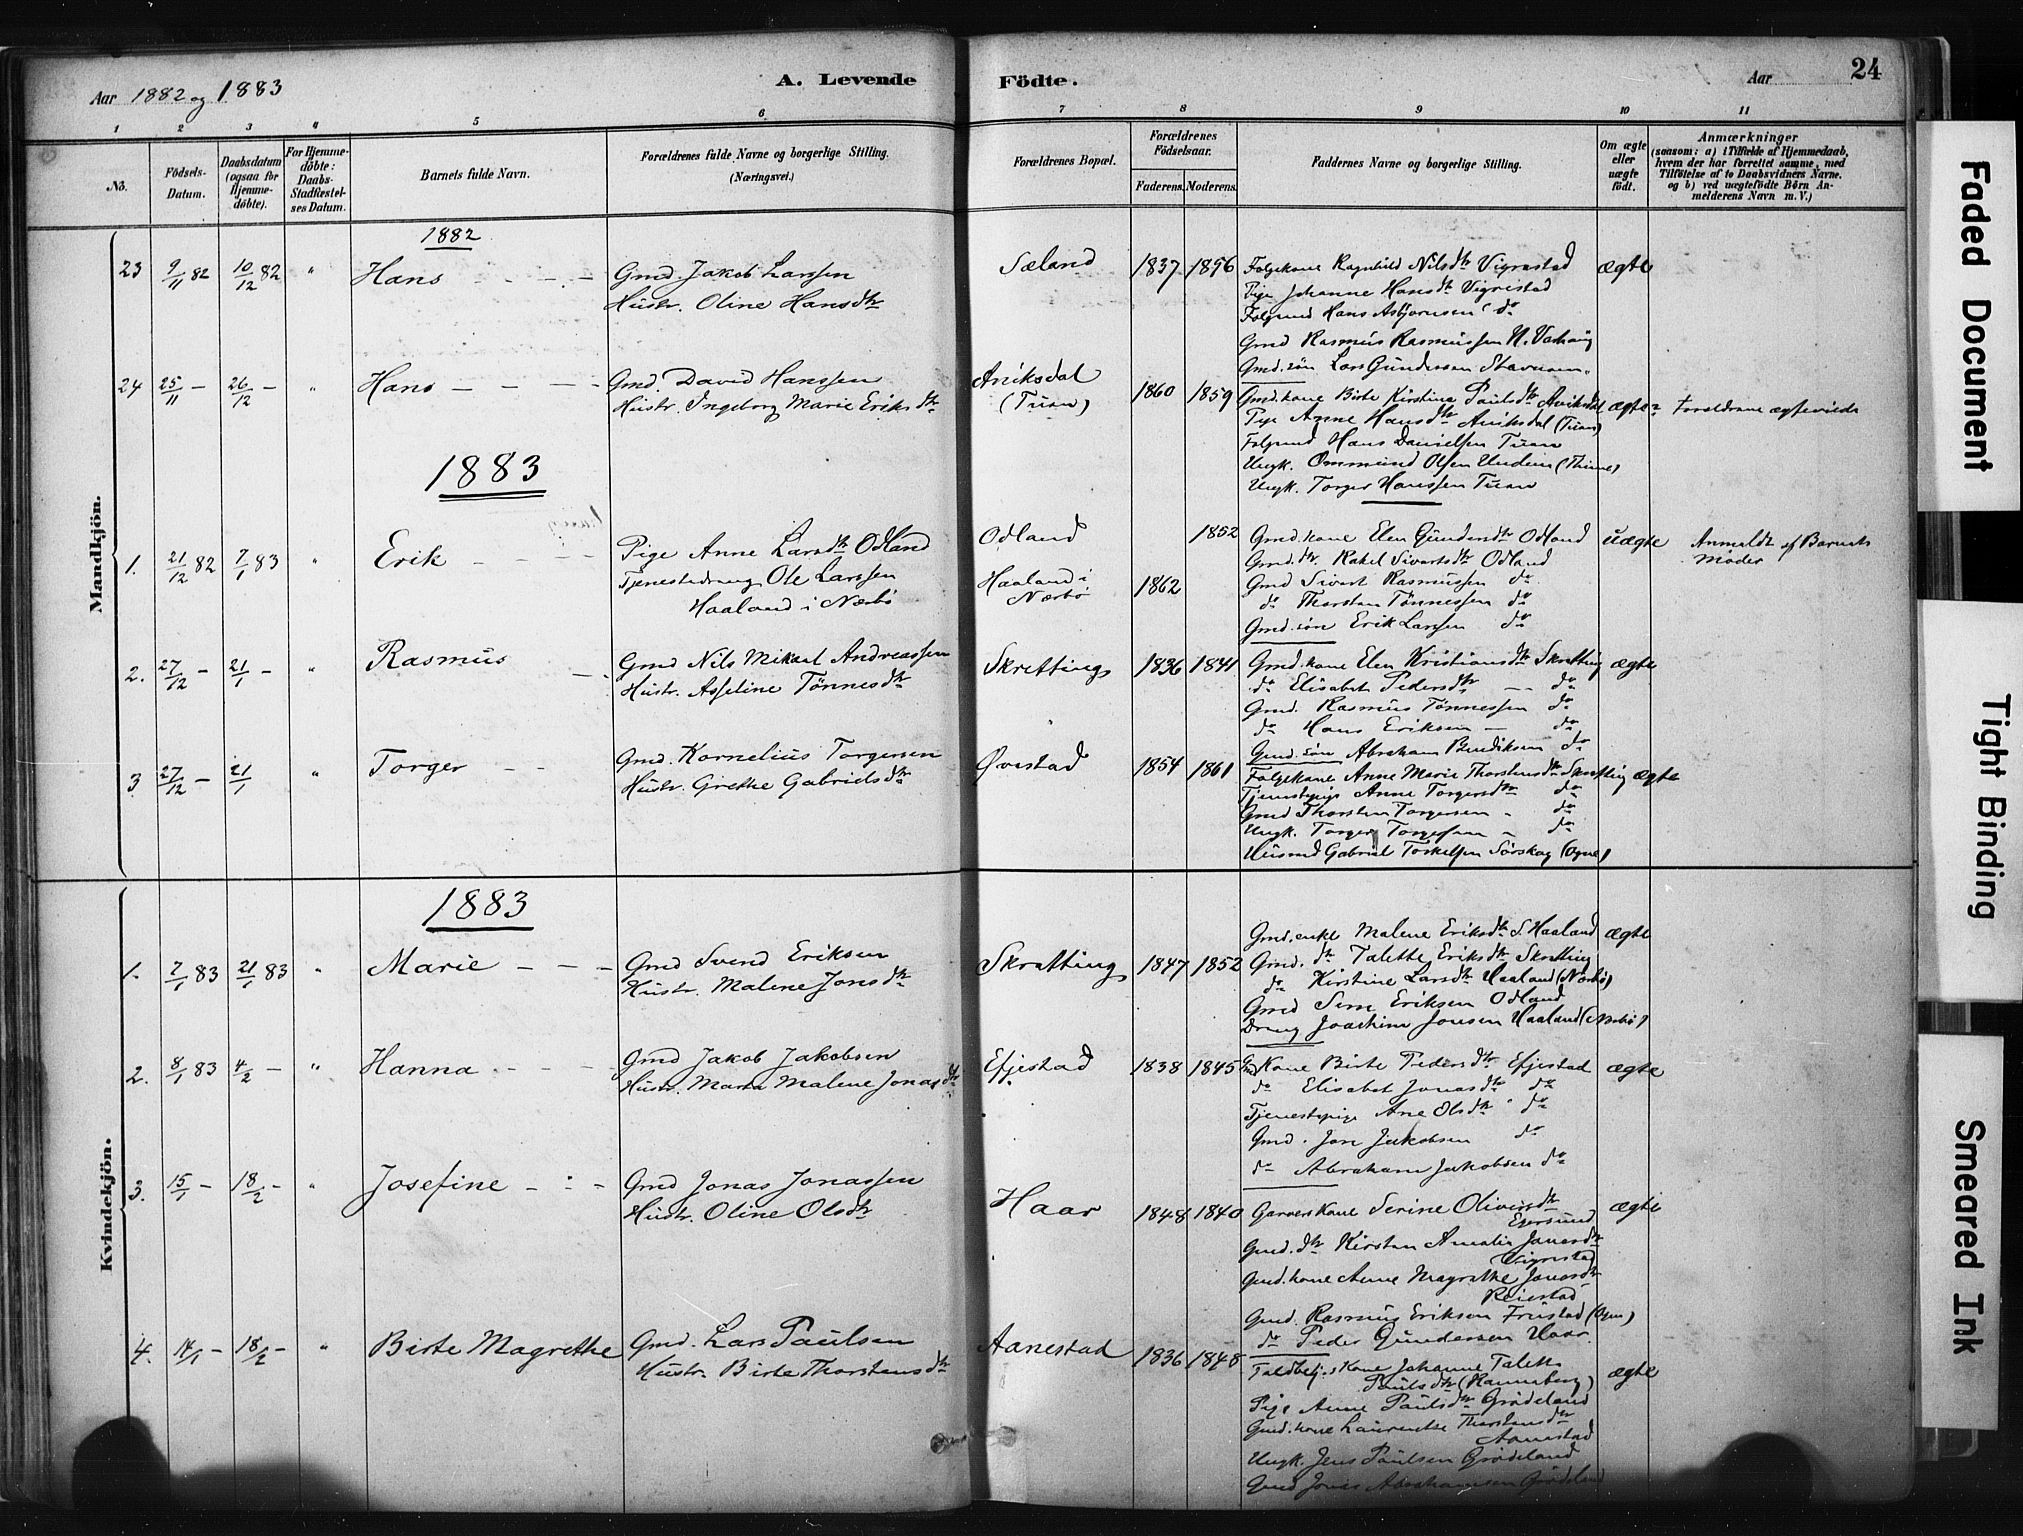 Aar 1882 og 1883
A. Levende Födte.
Aar 24
1 2 3 4 5 6 7 8 9 10 11
No.
Födsels-Datum.
Daabsdatum (ogsaa for Hjemme-döbte).
For Hjemme-döbte: Daabs-Stadfæstel-ses Datum.
Barnets fulde Navn.
Forældrenes fulde Navne og borgerlige Stilling. (Næringsvei.)
Forældrenes Bopæl.
Forældrenes Födselsaar.
Faderens. Moderens.
Faddernes Navne og borgerlige Stilling.
Om ægte eller uægte födt.
Anmærkninger
(saasom: a) i Tilfælde af Hjemmedaab, hvem der har forrettet samme, med Tilföielse af to Daabsvidners Navne. og b) ved uægtefödte Börn An-melderens Navn m. V.)
Mandkjön.
1882
23 9/11 82 10/12 82 " Hans
Gmd. Jakob Larssen
Hustr. Oline Hansdtr
Sæland 1837 1856
Folgekone Ragnhild Nilsdtr Vigrestad
Pige Johanne Hansdtr Vigrestad
Folgmd Hans Asbjornsen do
Gmd Rasmus Rasmussen N. Varhaug
Gmd. sön Lars Gundersen
ægte
24 25/11 - 26/12 - " Hans
Gmd. David Hanssen
Hustr. Ingeborg Marie Eriksdtr
Aniksdal
(Tuen)
1860 1859
Gmd. kone Birte Kirstine Paulsdtr Aniksdal
Pige Anne Hansdtr Aniksdal (Tuen)
Folgmd Hans Danielsen Tuen
Ungk. Ommund Olsen Undem (Thime)
Ungk. Torger Hanssen Tuen
ægte
Forældrene ægteviede
1883
1. 21/12 82 7/1 83 " Erik
Pige Anne Larsdtr Odland
Tjenestedreng Ole Larssen
Haaland i Nærbö
Odland 1852
Haaland i
Nærbö 1862
Gmd. kone Elen Gundersdtr Odland
Gmd. dtr. Rakel Sivertsdtr Odland
Gmd Sivert Rasmussen do
do Thorsten Tönnessen do
Gmd. sön Erik Larsen do
uægte
Anmeldt af Barnets
Moder
2. 27/12 - 21/1 - " Rasmus
Gmd Nils Mikael Andreassen
Hustr. Asseline Tönnesdtr
Skretting 1836 1841
Gmd. kone Elen Kristiansdtr Skretting
do Elisabet Pedersdtr do
Gmd. Rasmus Tönnessen do
do Hans Eriksen do
Gmd. sön Abraham Bendiksen do
ægte
3. 27/12 - 21/1 " Torger
Gmd Kornelius Torgersen
Hustr. Grethe Gabrielsdtr
Øvestad 1854 1861
Folgekone Anne Marie Thorstensdtr Skretting
Tjenestepige Anne Torgersdtr do
Gmd Thorsten Torgersen do
Ungk. Torger Torgersen do
Husmd Gabriel Torkelsen Sörskog (Ogne)
ægte
Kvindekjön.
1883
1. 7/1 83 21/1 83 " Marie
Gmd Svend Eriksen
Hustr. Malene Jonsdtr
Skretting 1847 1852
Gmd. enke Malene Eriksdtr S. Haaland
Gmd. dtr Talette Eriksdtr Skretting
do Kirstine Larsdtr Haaland (Nærbö)
Gmd Eriksen Odland
Dreng Joachim Jonsen Haaland (Nærbö)
ægte
2. 8/1 83 4/2 - " Hanna
Gmd Jakob Jakobsen
Hustr. Marta Malene Jonasdtr
Efjestad 1838 1845
Gmd Kone Birte Pedersdtr Efjestad
do Elisabet Jonasdtr do
Tjenestepige Ane Olsdtr do
Gmd. Jon Jakobsen do
do Abraham Jakobsen do
ægte
3. 15/1 - 18/2 - " Josefine
Gmd Jonas Jonassen
Hustr. Oline Olsdtr
Haar 1848 1840
Garverkone Serine Oliversdtr
Egersund
Gmd. dtr Kirsten Amalia Jonasdtr
Vigrestad
Gmd. kone Anne Magrethe Jonasdtr
Reiestad
Gmd. Rasmus Eriksen Fuestad (Ogne)
do Peder Gundersen Haar
ægte
4. 14/1 - 18/2 - " Birte Magrethe
Gmd. Lars Paulsen
Hustr. Birte Thorstensdtr
Aanestad 1836 1848
Kone Johanne Talette
Paulsdtr (Hannaberg)
Pige Anne Paulsdtr Grödeland
Gmd. kone Laurentse Thorstensdtr
Aanestad
Ungk. Jens Paulsen Grödeland
Gmd Jonas Abrahamsen Grödeland
ægte
Faded Document
Tight Binding
Smeared Ink